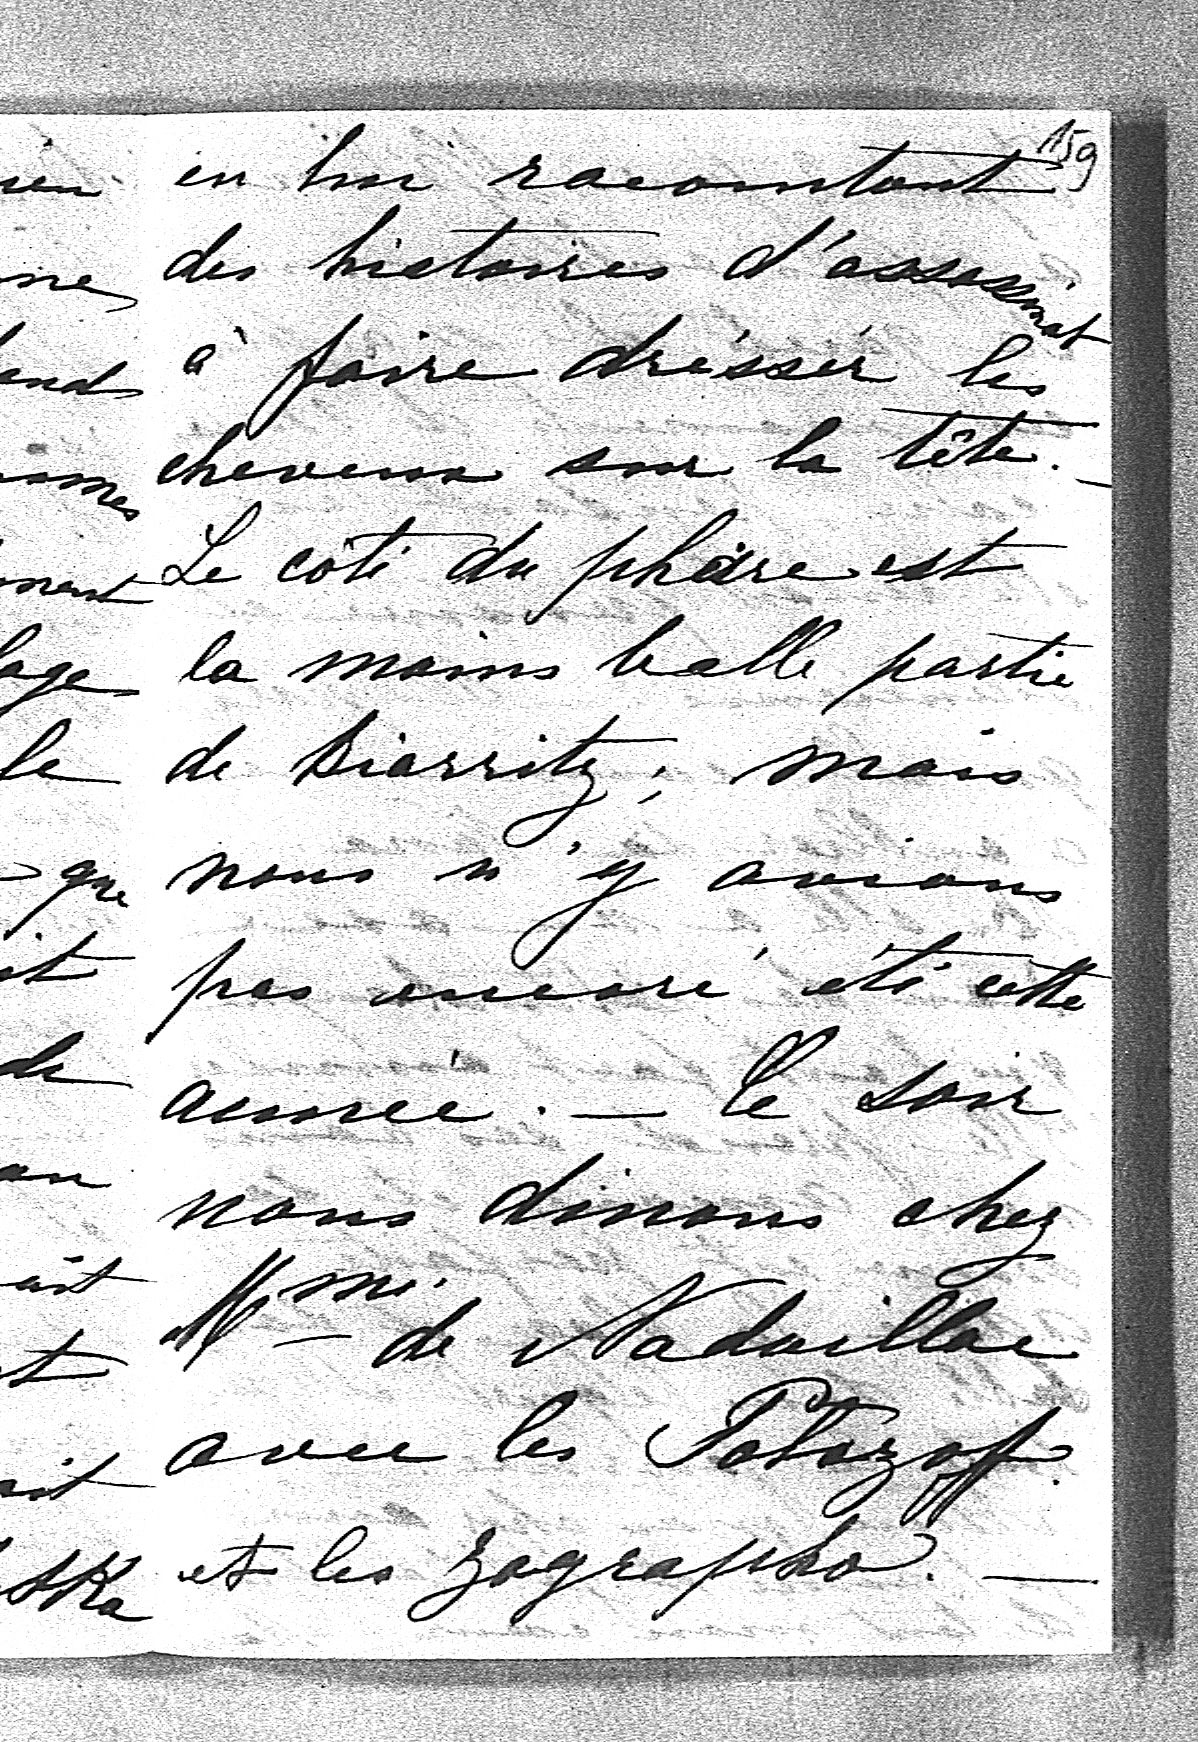 159
en lui racontant
des histoires d'assassinat
à faire dresser les
cheveux sur la tête. —
Le côté du phare est
la moins belle partie
de Biarritz; mais
nous n'y avions
pas encore été cette
année. — le soir
nous dinons chez
Mme de Nadaillac
avec les
et les Zographo. —
que
it
de
le